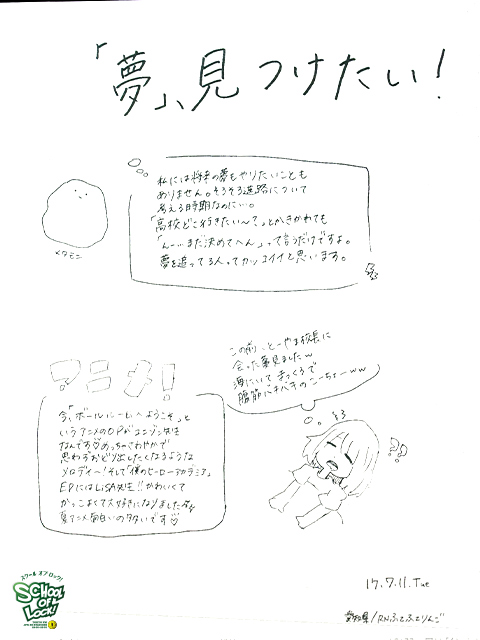 「夢」、見つけたい！
私には将来の夢もやりたいことも
ありません。そろそろ進路について
考える時期なのに…。
「高校どこ行きたい〜？」とかきかれても
「んー…まだ決めてへん」って言うだけですよ。
夢を追ってる人ってカッコイイと思います。
メタモン
この前、とーやま校長に
会った夢見ましたw
海にいて まっくろで
腹筋バキバキのこーちょーww
アニメ！
今、「ボールルームへようこそ」と
いうアニメのOPがユニゾン先生
なんです♡めっちゃさわやかで
思わずおどり出したくなるような
メロディー！そして「僕のヒーローアカデミア」
EDにはLiSA先生！！かわいくて
かっこよくて大好きになりました
夏アニメ面白いの多いです♡
???
スクール オブ ロック！
SCHOOL OF LOCK!
17.7.11.Tue
愛知県/RN.ふとふとりんご